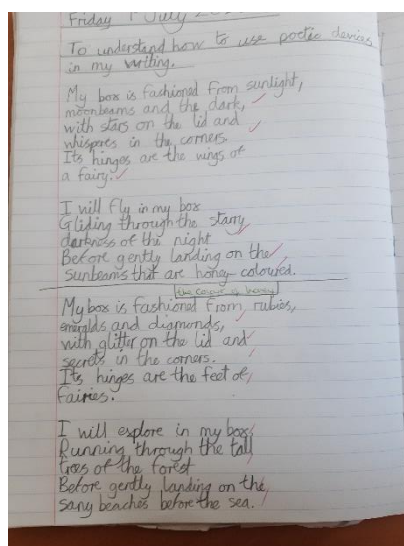 Friday 1 July
To understand how to use poetic devices
in my writing.
My box is fashioned from sunlight,
moonbeams and the dark,
with stars on the lid and
whispers in the corners.
Its hinges are the wings of
a fairy.
I will fly in my box
Gliding through the starry
darkness of the night
Before gently landing on the
Sunbeams that are honey-coloured.
the colour of honey
My box is fashioned from rubies,
emeralds and diamonds,
with glitter on the lid and
secrets in the corners.
Its hinges are the feet of
fairies.
I will explore in my box
Running through the tall
trees of the forest
Before gently landing on the
sany beaches before the sea.